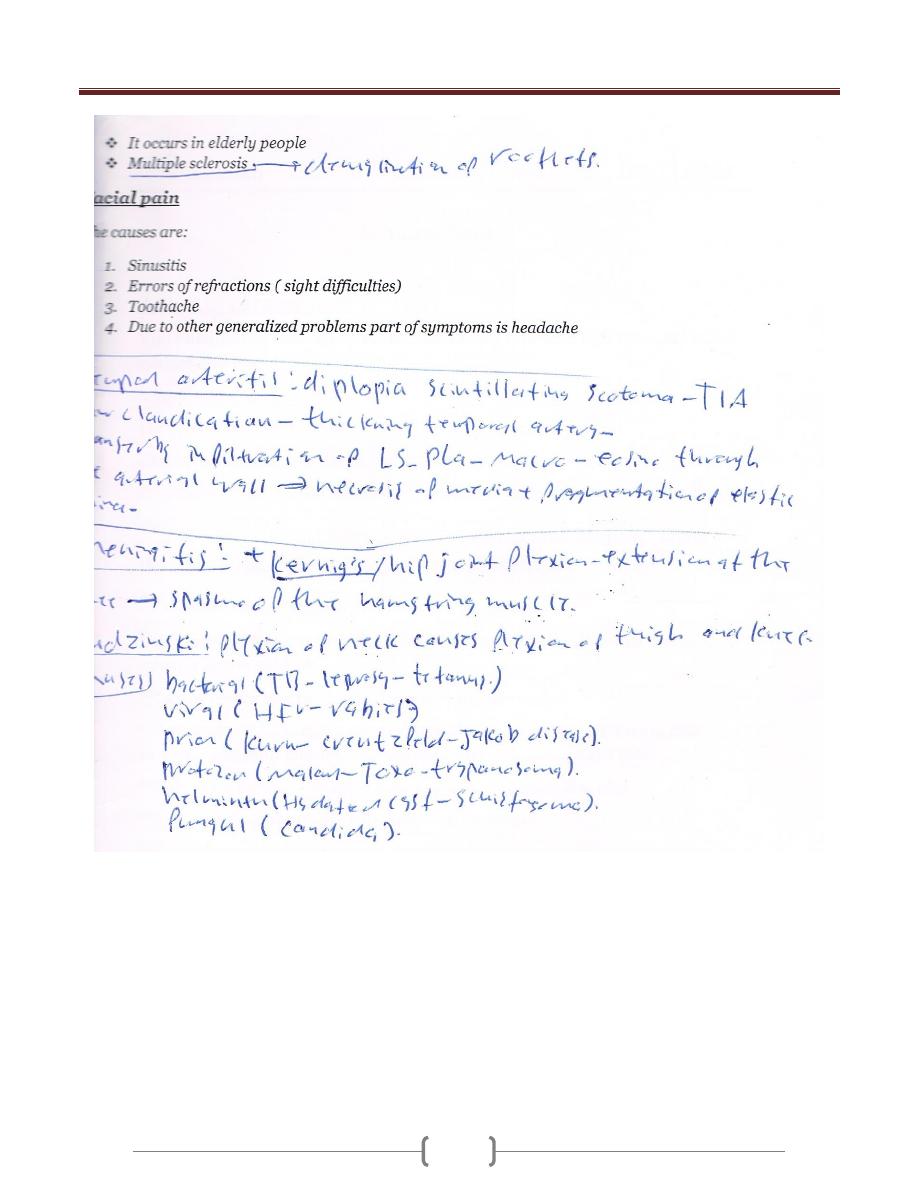 ❖ It occurs in elderly people
❖ Multiple sclerosis → demylination of rootlets.
acial pain
he causes are:
1. Sinusitis
2. Errors of refractions ( sight difficulties)
3. Toothache
4. Due to other generalized problems part of symptoms is headache
arteritis: diplopia scintillating scotoma - TIA
claudication - thickning temporal artery -
infiltration of LS - Pla - Macro - eosino through
arterial wall → necrosis of media + fragmentation of elastic
meningitis: + Kernig's / hip joint flexion - extension at the
→ spasm of the hamstring muscle.
udzinski: flexion of neck causes flexion of thigh and knee.
auses) bacterial (TB - leprosy - tetanus.)
viral (HIV - rabies)
prion ( kuru - creutzfeld - Jakob disease).
protozoa (malaria - Toxo - trypanosoma).
helminth (Hydated cyst - Schistosoma).
fungul ( candida).